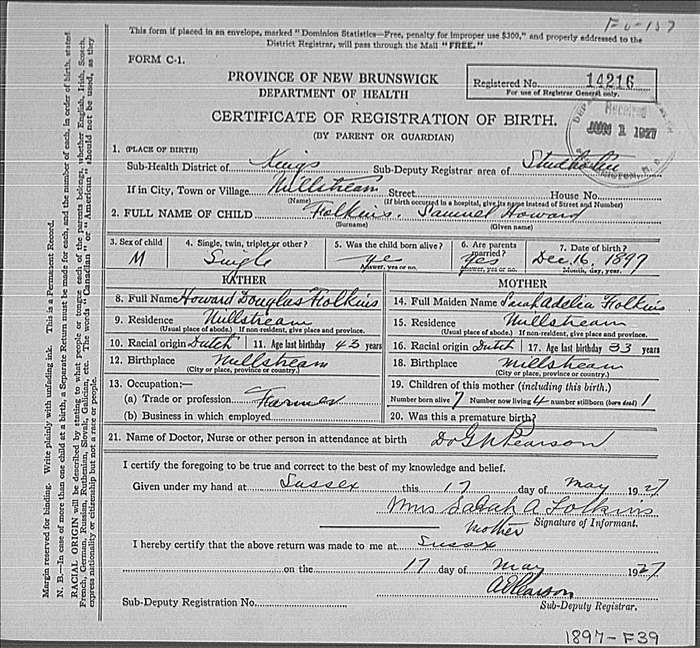 This form if placed in an envelope, marked "Dominion Statistics—Free, penalty for improper use $300," and properly addressed to the
District Registrar, will pass through the Mail "FREE."
FORM C-1.
PROVINCE OF NEW BRUNSWICK
DEPARTMENT OF HEALTH
Registered No. 14216
For use of Registrar General only.
CERTIFICATE OF REGISTRATION OF BIRTH.
(BY PARENT OR GUARDIAN)
Received
JUN 1 1927
1. (PLACE OF BIRTH)
Sub-Health District of Kings Sub-Deputy Registrar area of Studholm
If in City, Town or Village Millstream Street House No.
(Name) (If birth occurred in a hospital, give its name instead of Street and Number)
2. FULL NAME OF CHILD Folkins, Samuel Howard
(Surname) (Given name)
3. Sex of child 4. Single, twin, triplet or other? 5. Was the child born alive? 6. Are parents married? 7. Date of birth?
M Single yes yes Dec. 16. 1897
Answer, yes or no. Answer, yes or no. Month, day, year.
FATHER MOTHER
8. Full Name Howard Douglas Folkins 14. Full Maiden Name Sarah Adelia Folkins
9. Residence Millstream 15. Residence Millstream
(Usual place of abode.) If non resident, give place and province. (Usual place of abode.) If non-resident, give place and province.
10. Racial origin Dutch 11. Age last birthday 43 years 16. Racial origin Dutch 17. Age last birthday 33 years
12. Birthplace Millstream 18. Birthplace Millstream
(City or place, province or country.) (City or place, province or country.)
13. Occupation:— 19. Children of this mother (including this birth.)
(a) Trade or profession Farmer Number born alive 7 Number now living 4 number stillborn (born dead) 1
(b) Business in which employed 20. Was this a premature birth?
21. Name of Doctor, Nurse or other person in attendance at birth Pearson
I certify the foregoing to be true and correct to the best of my knowledge and belief.
Given under my hand at Sussex this 17 day of May 1927
Mrs Sarah A Folkins
Mother Signature of Informant.
I hereby certify that the above return was made to me at Sussex
on the 17 day of May 1927
Pearson
Sub-Deputy Registration No. Sub-Deputy Registrar.
1897-F39
Margin reserved for binding. Write plainly with unfading ink. This is a Permanent Record.
N. B.—In case of more than one child at a birth, a Separate Return must be made for each, and the number of each, in order of birth, stated
RACIAL ORIGIN will be described by stating to what people or tongue each of the parents belongs, whether English, Irish, Scotch,
French, German, Russian, Ruthenian, Slovak, Galician, etc. The words "Canadian" or "American" should not be used, as they
express nationality or citizenship but not a race or people.